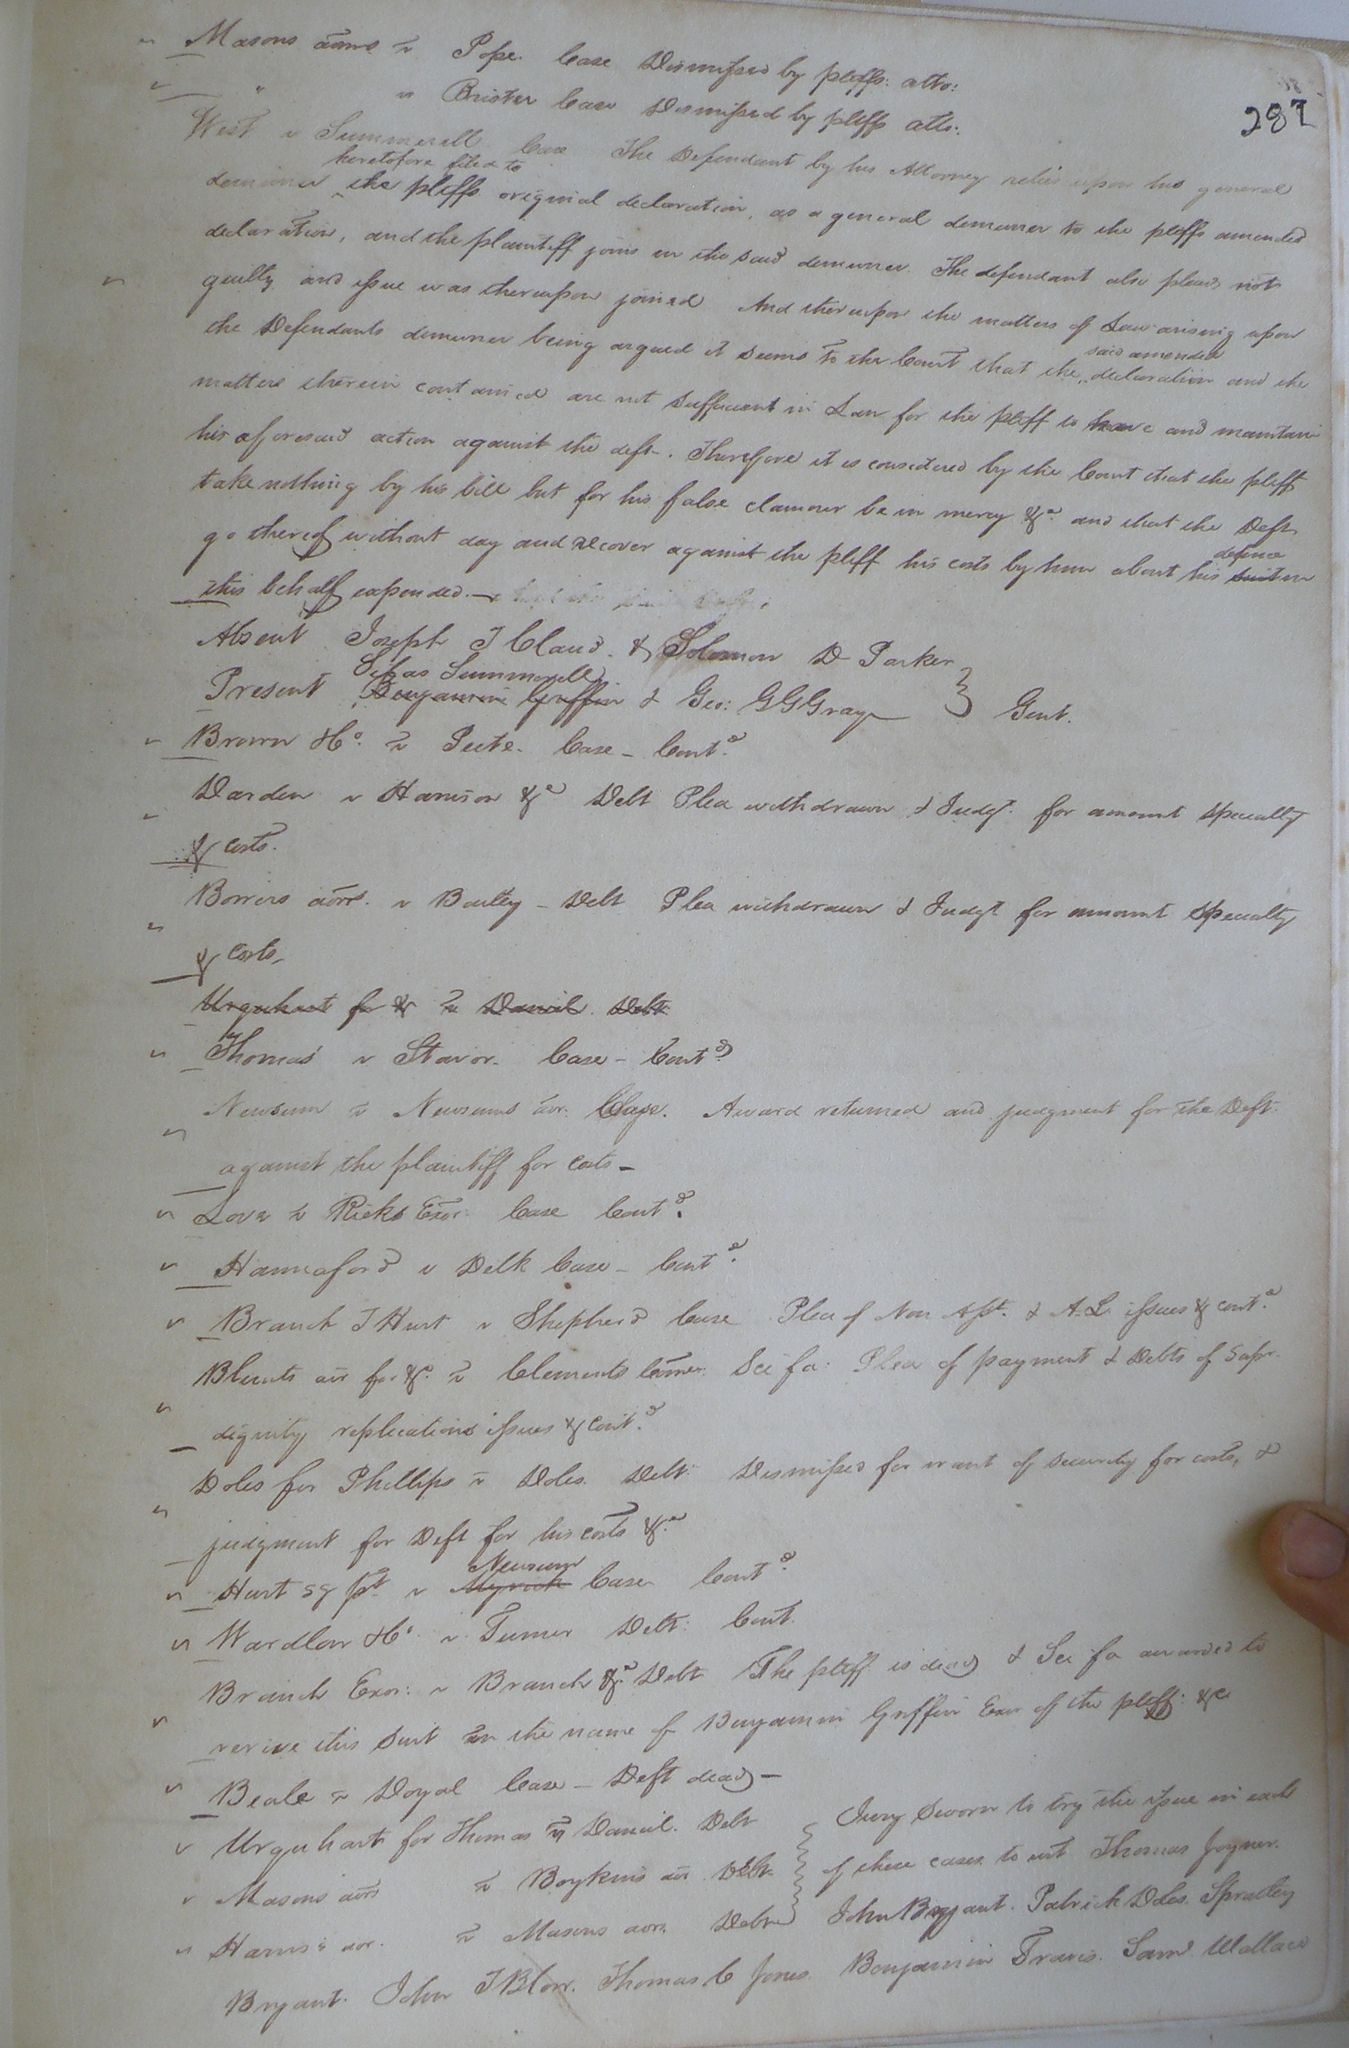 287
Masons admr v Pope. Case Dismissed by pltffs: atto:
" v Brister Case Dismissed by pltffs atto:
West v Summerell Case The Defendant by his Attorney relies upon his general
heretofore filed to
demurrer ^ the pltffs original declaration, as a general demurrer to the pltffs amended
declaration, and the plaintiff joins in the said demurrer. The defendant also pleads not
guilty and issue was thereupon joined And thereupon the matters of Law arising upon
said amended
the Defendants demurrer being argued it seems to the Court that the ^ declaration and the
matters therein contained are not sufficient in Law for the pltff to have and maintain
his aforesaid action against the deft. Therefore it is considered by the Court that the pltff
take nothing by his bill but for his false clamour be in mercy &c. and that the Deft
defence
go thereof without day and recover against the pltff his costs by him about his suit in
this behalf expended.—
Absent Joseph T Claud. & Solomon D Parker
Silas Summerell
Present Benjamin Griffin & Geo: G G Gray } Gent.
Brown & Co. v Peete. Case – Contd.
Darden v Harrison &c Debt Plea withdrawn & Judgt. for amount specialty
& costs.
admr. v Bailey – Debt Plea withdrawn & Judgt for amount specialty
& costs,
Urquhart for & v Daniel. Debt
Thomas v Stavor. Case – Contd
Newsum v Newsums admr. Case. Award returned and judgment for the Deft.
against the plaintiff for costs –
Love v Ricks Exor: Case Contd.
Hannaford v Delk Case – Contd.
Branch T Hurt v Shepherd Case Plea of Non Asst. & A. L. issues & contd.
Blunts adr for &c. v Clements Sci fa: Plea of payment & Debts of Supr.
dignity replications issues & contd.
Doles for Phillips v Doles. Debt: Dismissed for want of security for costs, &
judgment for Deft for his costs &c
Newsum
Hurt v Myrick Case Contd.
Wardlow & Co. v Turner Debt: Cont.
Branch Exor: v Branch &c Debt The pltff. is dead & Sci fa awarded to
revive this suit in the name of Benjamin Griffin Exor of the pltff: &c
Beale v Doyal Case – Deft dead –
Urquhart for Thomas v Daniel. Debt } Jury sworn to try the issue in each
Masons admr v Boykins adr Debt. } of these cases to wit Thomas Joyner.
Harris's adr. v Masons admr. Debt } John Bryant. Patrick Doles. Spratley
Bryant. John T Blow. Thomas C Jones. Benjamin Travis. Saml Wallace